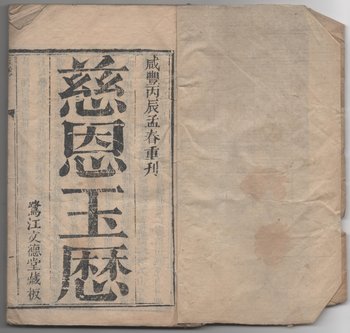 咸豐丙辰孟春重刊
慈恩玉曆
鷺江文德堂藏板